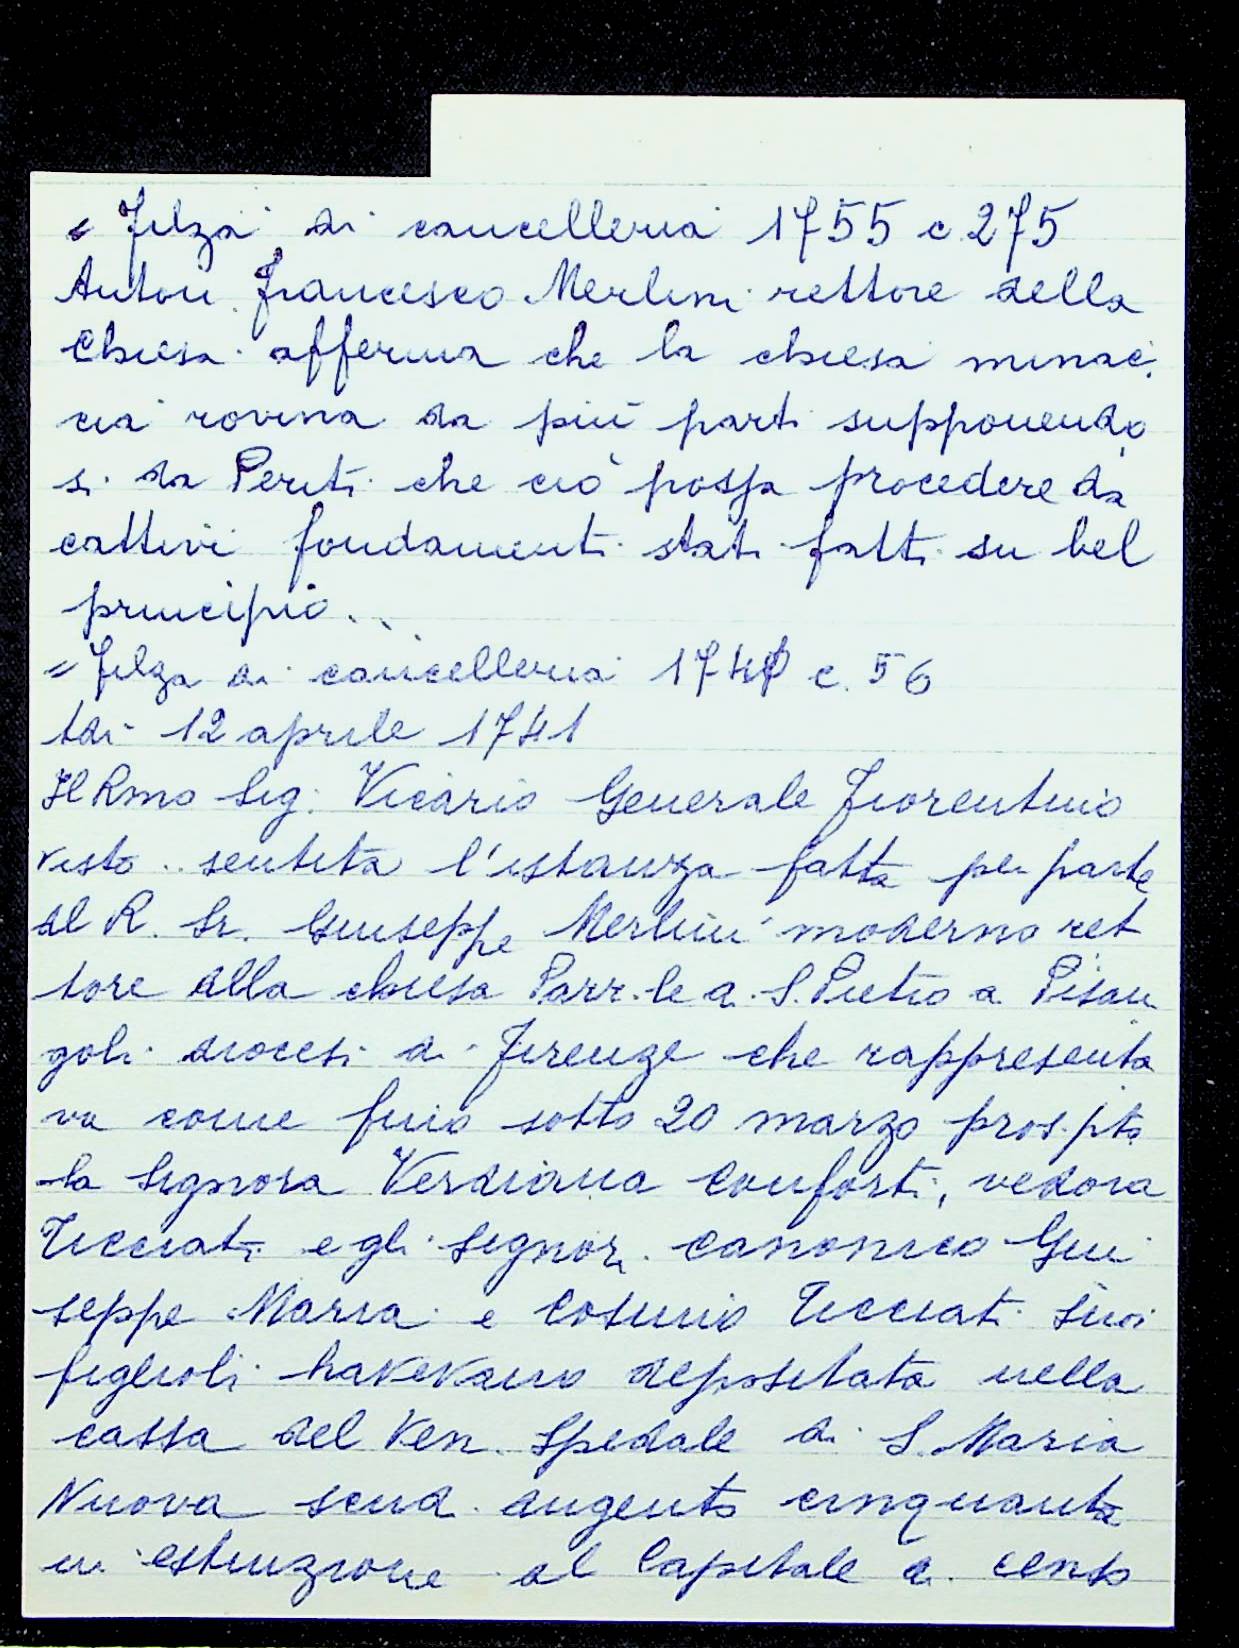 = Filza di cancelleria 1755 c 275
Anton Francesco Merlini rettore della
Chiesa afferma che la chiesa minac
cia rovina da più parti supponendo
si da Periti che ciò possa procedere da
cattivi fondamenti stati fatti su bel
principio...
= Filza di cancelleria 1740 c. 56
Adi 12 aprile 1741
Il Rmo Sig. Vicario Generale Fiorentino
visto.. sentita l'istanza fatta per parte
del R. Sr. Giuseppe Merlini moderno ret
tore della chiesa Parr.le di S. Pietro a Pisan
goli diocesi di Firenze che rappresenta
va come fino sotto 20 marzo pros. pto
la Signora Verdiana Conforti, vedova
Ticciati e gli Signori canonico Giu
seppe Maria e Cosimo Ticciati suoi
figlioli havevano depositata nella
cassa del Ven. Spedale di S. Maria
Nuova scudi dugento cinquanta
in estinzione del Capitale di cento